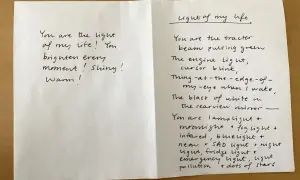 You are the light
of my life! You
brighten every
moment! Shiny!
Warm!
Light of my life
You are the tractor
beam pulling green
The engine light,
cursor blink,
Thing-at-the-edge-of-
my-eye when I wake,
The blast of white in
the rearview mirror —
You are lamplight +
moonlight + fog light +
infrared, bluelight +
neon + SAD light + night
light, fridge light +
emergency light, light
pollution + dots of stars